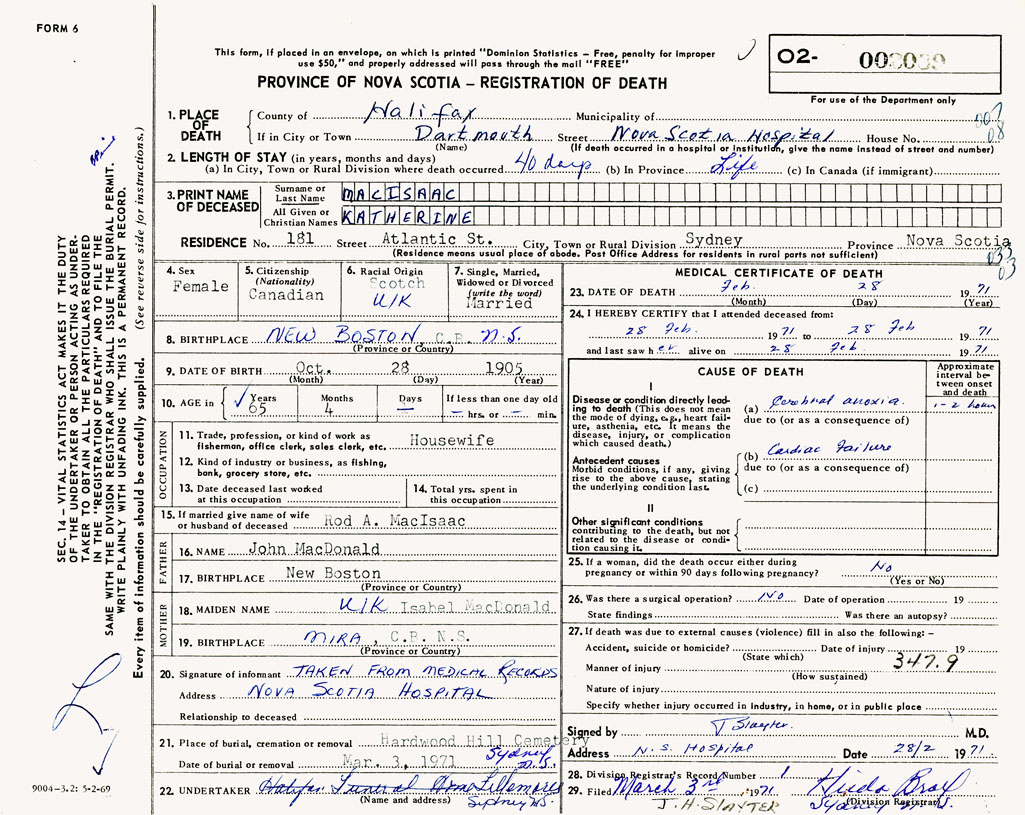 FORM 6
This form, if placed in an envelope, on which is printed "Dominion Statistics – Free, penalty for improper
use $50," and properly addressed will pass through the mail "FREE"
PROVINCE OF NOVA SCOTIA – REGISTRATION OF DEATH
02-
For use of the Department only
1. PLACE OF DEATH
County of Halifax Municipality of
If in City or Town Dartmouth Street Nova Scotia Hospital House No.
(Name) (If death occurred in a hospital or institution, give the name instead of street and number)
2. LENGTH OF STAY (in years, months and days)
(a) In City, Town or Rural Division where death occurred 40 days (b) In Province Life (c) In Canada (if immigrant)
3. PRINT NAME OF DECEASED
Surname or Last Name MACISAAC
All Given or Christian Names KATHERINE
RESIDENCE No. 181 Street Atlantic St. City, Town or Rural Division Sydney Province Nova Scotia
(Residence means usual place of abode. Post Office Address for residents in rural parts not sufficient)
4. Sex
Female
5. Citizenship
(Nationality)
Canadian
6. Racial Origin
Scotch
U/K
7. Single, Married,
Widowed or Divorced
(write the word)
Married
8. BIRTHPLACE NEW BOSTON, C.B. N.S.
(Province or Country)
9. DATE OF BIRTH Oct. 28 1905
(Month) (Day) (Year)
10. AGE in
Years Months Days If less than one day old
65 4 – – hrs. or – min.
OCCUPATION
11. Trade, profession, or kind of work as
fisherman, office clerk, sales clerk, etc. Housewife
12. Kind of industry or business, as fishing,
bank, grocery store, etc.
13. Date deceased last worked
at this occupation
14. Total yrs. spent in
this occupation
15. If married give name of wife
or husband of deceased Rod A. MacIsaac
FATHER
16. NAME John MacDonald
17. BIRTHPLACE New Boston
(Province or Country)
MOTHER
18. MAIDEN NAME U/K Isabel MacDonald
19. BIRTHPLACE MIRA, C.B. N.S.
(Province or Country)
20. Signature of informant TAKEN FROM MEDICAL RECORDS
Address NOVA SCOTIA HOSPITAL
Relationship to deceased
21. Place of burial, cremation or removal Hardwood Hill Cemetery
Sydney N.S.
Date of burial or removal Mar. 3, 1971
22. UNDERTAKER Halifax Funeral
(Name and address) Sydney NS.
MEDICAL CERTIFICATE OF DEATH
23. DATE OF DEATH Feb. 28 1971
(Month) (Day) (Year)
24. I HEREBY CERTIFY that I attended deceased from:
28 Feb. 1971 to 28 Feb 1971
and last saw her alive on 28 Feb. 1971
CAUSE OF DEATH
Approximate
interval be-
tween onset
and death
I
Disease or condition directly lead-
ing to death (This does not mean
the mode of dying, e.g., heart fail-
ure, asthenia, etc. It means the
disease, injury, or complication
which caused death.)
(a) Cerebral anoxia. 1-2 hours
due to (or as a consequence of)
Antecedent causes
Morbid conditions, if any, giving
rise to the above cause, stating
the underlying condition last.
(b) Cardiac Failure
due to (or as a consequence of)
(c)
II
Other significant conditions
contributing to the death, but not
related to the disease or condi-
tion causing it.
25. If a woman, did the death occur either during
pregnancy or within 90 days following pregnancy? No
(Yes or No)
26. Was there a surgical operation? NO Date of operation 19
State findings Was there an autopsy?
27. If death was due to external causes (violence) fill in also the following: –
Accident, suicide or homicide? Date of injury 19
(State which) 347.9
Manner of injury
(How sustained)
Nature of injury
Specify whether injury occurred in industry, in home, or in public place
Signed by T Slayter. M.D.
Address N.S. Hospital Date 28/2 1971
28. Division Registrar's Record Number 1
29. Filed March 3rd 1971 Hilda
J.H. SLAYTER (Division Registrar)
Sydney N.S.
SEC. 14 – VITAL STATISTICS ACT MAKES IT THE DUTY
OF THE UNDERTAKER OR PERSON ACTING AS UNDER-
TAKER TO OBTAIN ALL THE PARTICULARS REQUIRED
IN THE "REGISTRATION OF DEATH" AND TO FILE THE
SAME WITH THE DIVISION REGISTRAR WHO SHALL ISSUE THE BURIAL PERMIT.
WRITE PLAINLY WITH UNFADING INK. THIS IS A PERMANENT RECORD.
Every item of information should be carefully supplied. (See reverse side for instructions.)
9004-3.2: 5-2-69